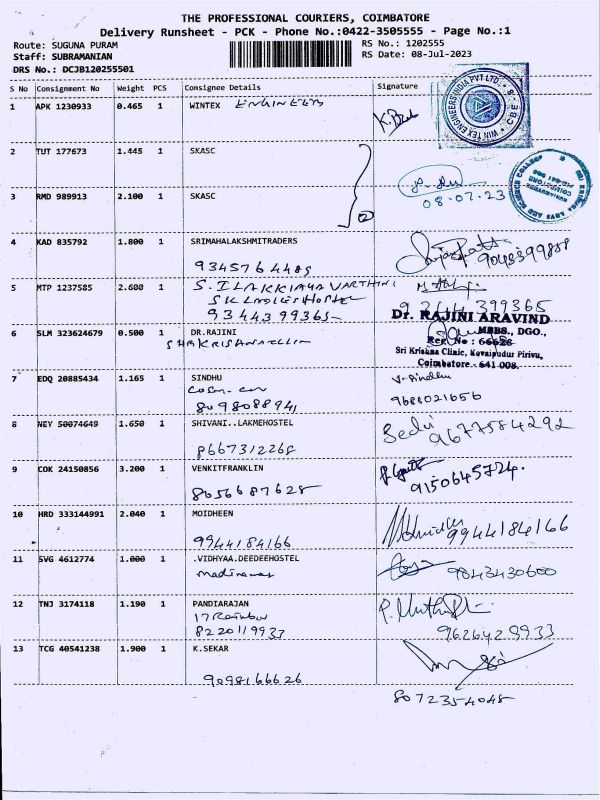 THE PROFESSIONAL COURIERS, COIMBATORE
Delivery Runsheet - PCK - Phone No.:0422-3505555 - Page No.:1
Route: SUGUNA PURAM
Staff: SUBRAMANIAN
DRS No.: DCJB120255501
RS No.: 1202555
RS Date: 08-Jul-2023
S No Consignment No Weight PCS Consignee Details Signature
1 APK 1230933 0.465 1 WINTEX ENGINEERS
WIN TEX ENGINEERS INDIA PVT LTD. CBE - 8
2 TUT 177673 1.445 1 SKASC
3 RMD 989913 2.100 1 SKASC
2
08.07.23
4 KAD 835792 1.800 1 SRIMAHALAKSHMITRADERS
9345764485 9043399858
5 MTP 1237585 2.600 1 S. ILAKKIYA VARTHINI
SK LADIES HOSTEL
9344399365 9344399365
6 SLM 323624679 0.500 1 DR.RAJINI
Dr. RAJINI ARAVIND
MBBS., DGO.,
Reg No : 66626
Sri Krishna Clinic, Kovaipudur Pirivu,
Coimbatore - 641 008.
7 EDQ 20885434 1.165 1 SINDHU
V. Sindhu
8098088941 9688021656
8 NEY 50074649 1.650 1 SHIVANI..LAKMEHOSTEL
8667312268 9677584292
9 COK 24150856 3.200 1 VENKITFRANKLIN
8056687628 9150645724.
10 HRD 333144991 2.040 1 MOIDHEEN
9944184166 9944184166
11 SVG 4612774 1.000 1 .VIDHYAA.DEEDEEHOSTEL
9843430600
12 TNJ 3174118 1.190 1 PANDIARAJAN
17 Rainbow
8220119933 9626428933
13 TCG 40541238 1.900 1 K.SEKAR
9098166626
8072354048